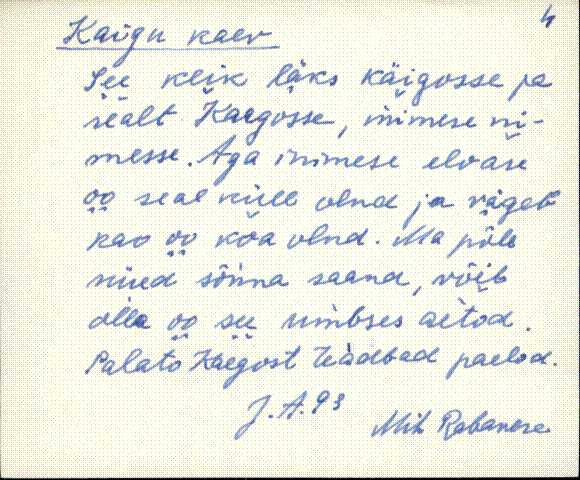 4
Kaigu kaev
See kleik läks käigosse ja
sealt Kaegosse, inimese ni-
messe. Aga inimese elvase
oo seal küll olnd ja vägeb
kao oo koa olnd. Ma põle
nüed sõnna saand, võib
olla oo see umbses aetod.
Palato Kaegost teadbad paelod.
J. A. 93
Mih Rabanera